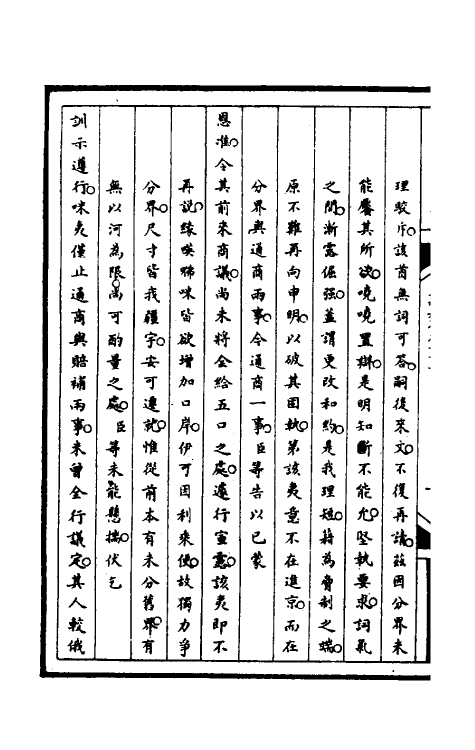 理駁斥。該酋無詞可答。嗣後來文。不復再請。茲因分界未
能饜其所欲。嘵嘵置辯。是明知斷不能允。堅執要求。詞氣
之間。漸露倔强。蓋謂更改和約。是我理短。藉為脅制之端。
原不難再向申明。以破其固執。第該夷意不在進京。而在
分界與通商兩事。今通商一事。臣等告以已蒙
恩准。令其前來商議。尚未將全給五口之處。遽行宣露。該夷即不
再說。緣㗆咈咪皆欲增加口岸。伊可因利乘便。故獨力爭
分界。尺寸皆我疆宇。安可遷就。惟從前本有未分舊界。有
無以河為限。尚可酌量之處。臣等未能懸揣。伏乞
訓示遵行。咪夷僅止通商與賠補兩事。未曾全行議定。其人較俄